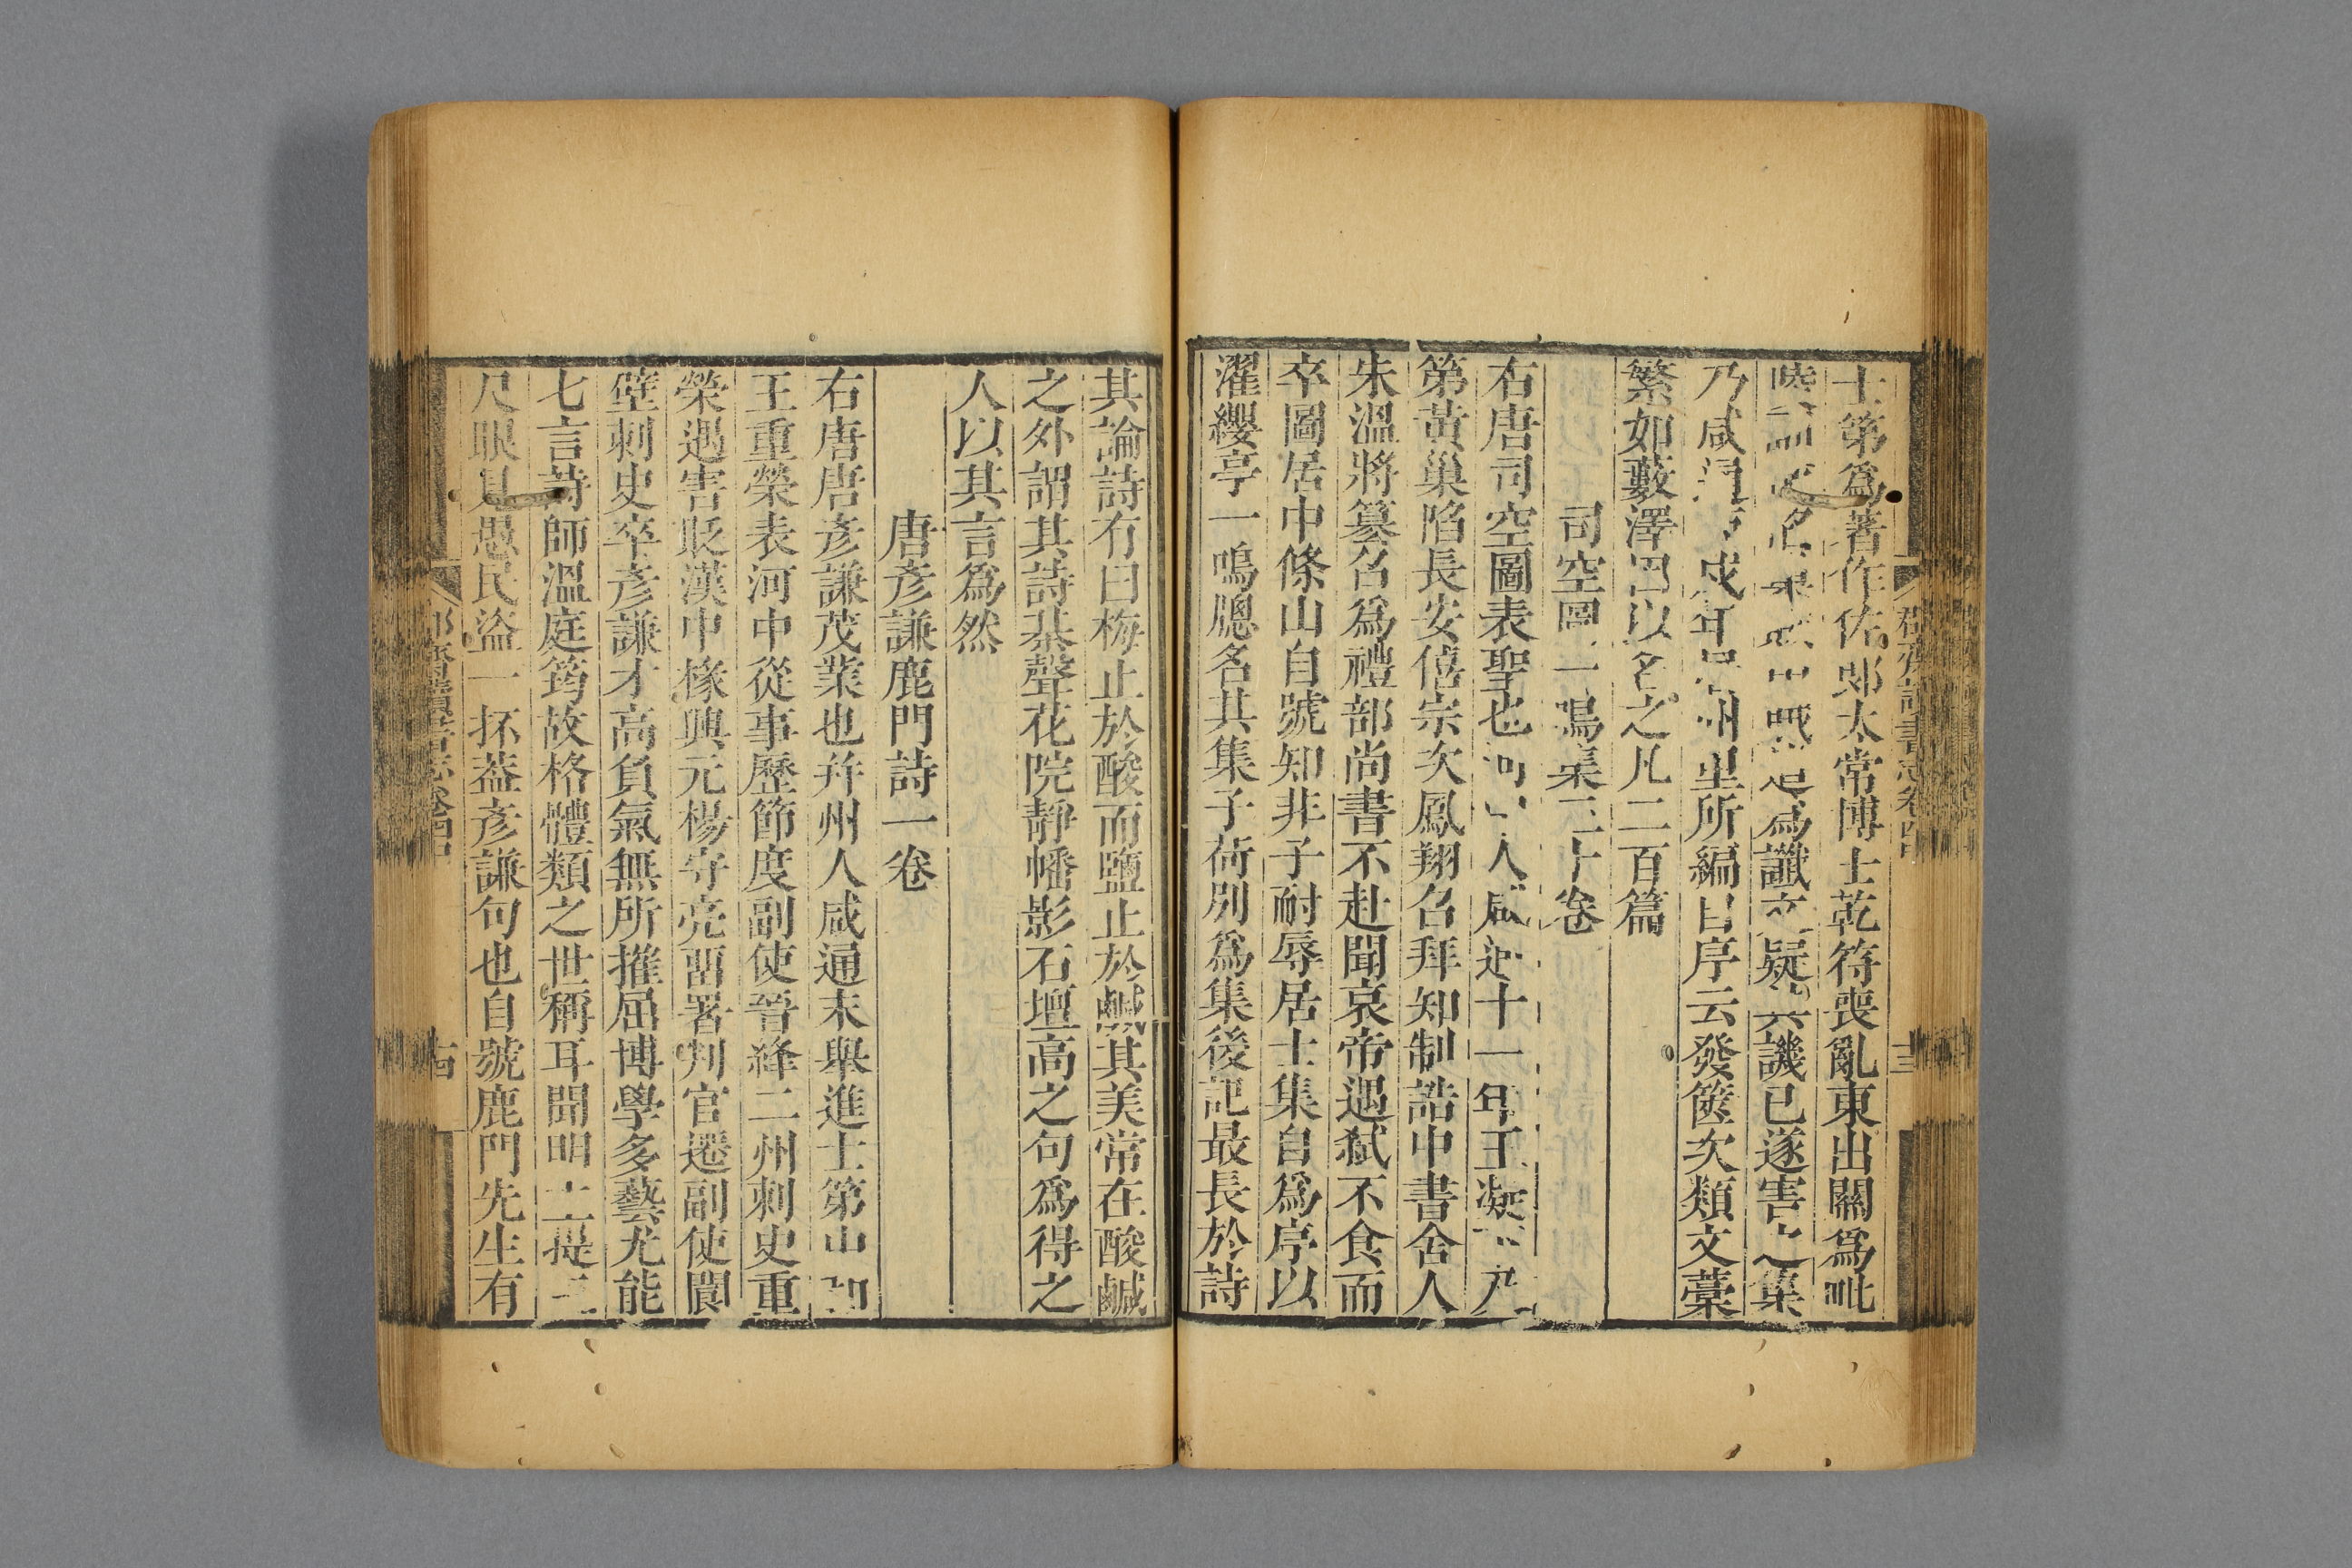 士第爲著作佐郎太常博士乾符喪亂東出關爲毗
陵 爲讖文疑 譏已遂害之集
乃咸通 戌年 州里所編自序云發篋次類文藁
繁如藪澤因以名之凡二百篇
司空圖一鳴集三十卷
右唐司空圖表聖也河 人咸通十一年王凝
第黃巢陷長安僖宗次鳳翔召拜知制誥中書舍人
朱溫將篡召爲禮部尚書不赴聞哀帝遇弑不食而
卒圖居中條山自號知非子耐辱居士集自爲序以
濯纓亭一鳴牕名其集子荷別爲集後記最長於詩
其論詩有曰梅止於酸而鹽止於鹹其美常在酸鹹
之外謂其詩棊聲花院靜幡影石壇高之句爲得之
人以其言爲然
唐彥謙鹿門詩一卷
右唐唐彥謙茂業也幷州人咸通末舉進士第
王重榮表河中從事歷節度副使晉絳二州刺史重
榮遇害貶漢中掾興元楊守亮畱署判官遷副使閬
壁刺史卒彥謙才高負氣無所摧屈博學多藝尤能
七言詩師溫庭筠故格體類之世稱耳聞明主提三
尺眼見愚民盜一抔葢彥謙句也自號鹿門先生有